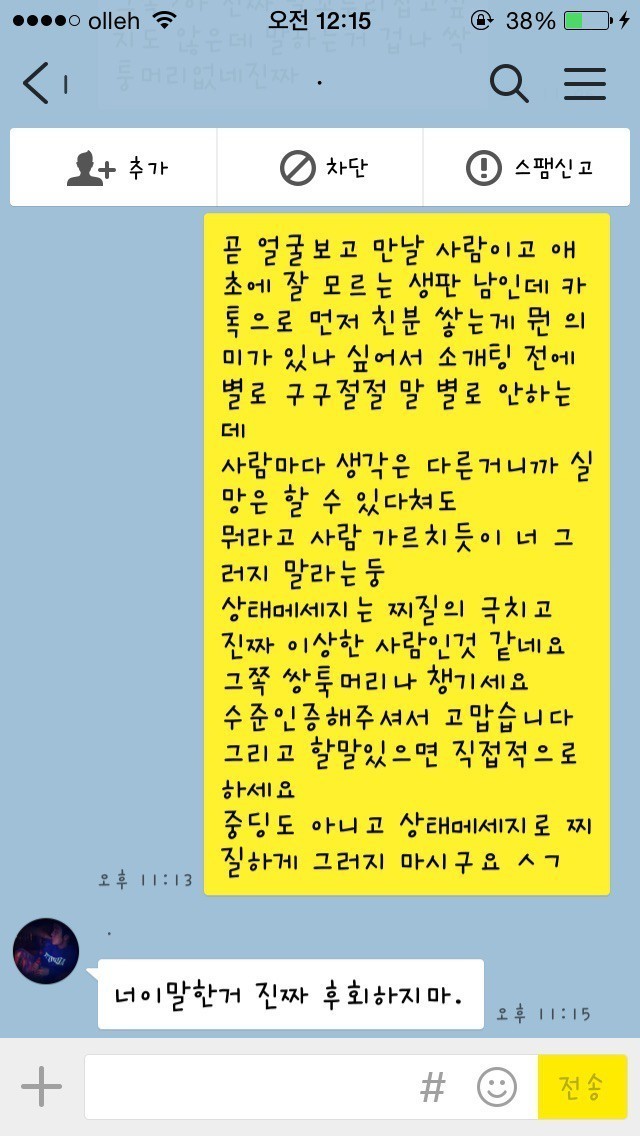 olleh 오전 12:15 38%
지도 않은데 말하는거 겁나 싹
퉁머리없네진짜
추가 차단 스팸신고
곧 얼굴보고 만날 사람이고 애
초에 잘 모르는 생판 남인데 카
톡으로 먼저 친분 쌓는게 뭔 의
미가 있나 싶어서 소개팅 전에
별로 구구절절 말 별로 안하는
데
사람마다 생각은 다른거니까 실
망은 할 수 있다쳐도
뭐라고 사람 가르치듯이 너 그
러지 말라는둥
상태메세지는 찌질의 극치고
진짜 이상한 사람인것 같네요
그쪽 쌍툭머리나 챙기세요
수준인증해주셔서 고맙습니다
그리고 할말있으면 직접적으로
하세요
중딩도 아니고 상태메세지로 찌
질하게 그러지 마시구요 ㅅㄱ
오후 11:13
너이말한거 진짜 후회하지마.
오후 11:15
# 전송